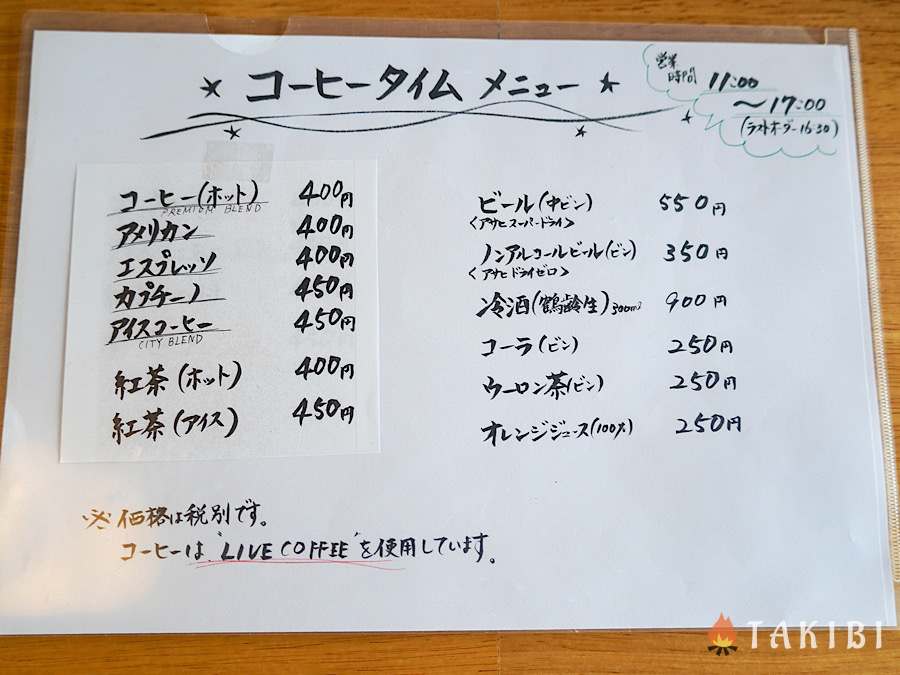 コーヒータイム メニュー
営業
時間
11:00
～17:00
(ラストオーダー16:30)
コーヒー(ホット) 400円
PREMIUM BLEND
アメリカン 400円
エスプレッソ 400円
カプチーノ 450円
アイスコーヒー 450円
CITY BLEND
紅茶(ホット) 400円
紅茶(アイス) 450円
ビール(中ビン) 550円
<アサヒスーパードライ>
ノンアルコールビール(ビン) 350円
<アサヒドライゼロ>
冷酒(鶴齢生)300ml 900円
コーラ(ビン) 250円
ウーロン茶(ビン) 250円
オレンジジュース(100%) 250円
※価格は税別です。
コーヒーは"LIVE COFFEE"を使用しています。
TAKIBI